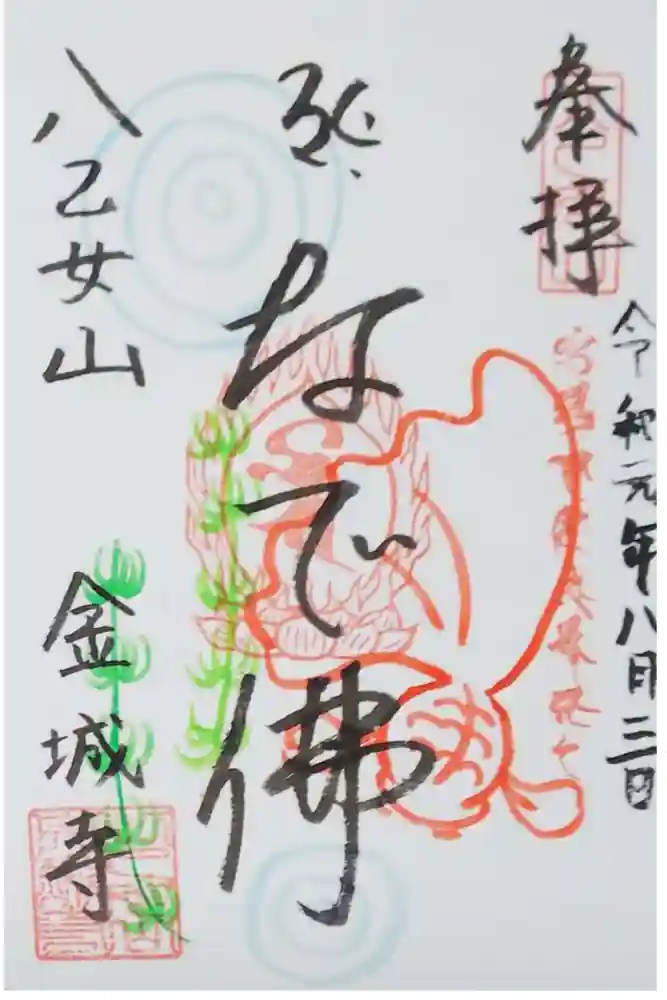 奉拝
令和元年八月三日
なで佛
八乙女山
金城寺